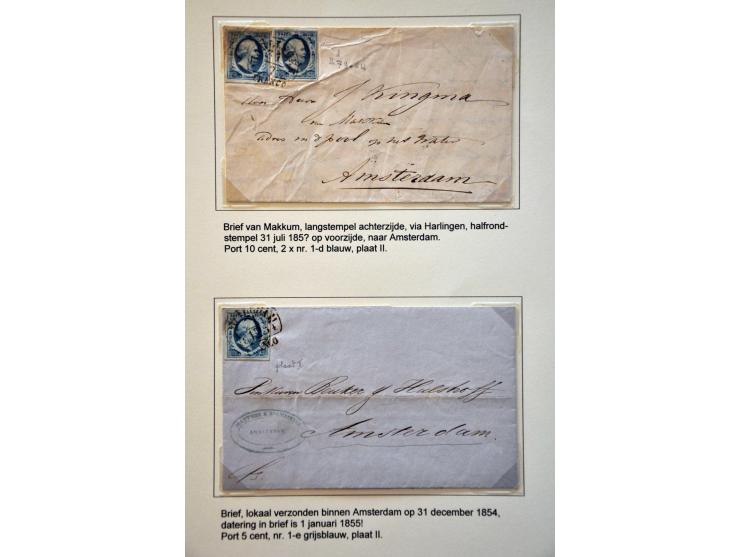 FRANCO
J Kingma
van Makkum
adres in d'pool op het Water
Amsterdam
Brief van Makkum, langstempel achterzijde, via Harlingen, halfrond-
stempel 31 juli 185? op voorzijde, naar Amsterdam.
Port 10 cent, 2 x nr. 1-d blauw, plaat II.
plaat I
Hulshoff
AMSTERDAM
Amsterdam.
Brief, lokaal verzonden binnen Amsterdam op 31 december 1854,
datering in brief is 1 januari 1855!
Port 5 cent, nr. 1-e grijsblauw, plaat II.